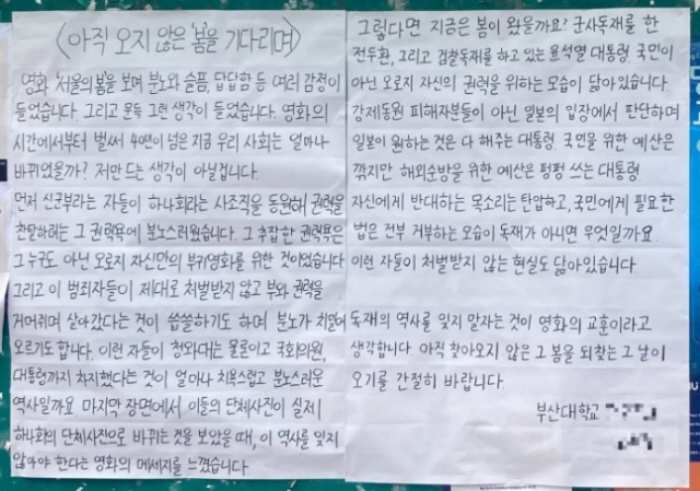 <아직 오지 않은 '봄'을 기다리며>
영화 '서울의 봄'을 보며 분노와 슬픔, 답답함 등 여러 감정이
들었습니다. 그리고 문득 그런 생각이 들었습니다. 영화의
시간에서부터 벌써 40년이 넘은 지금 우리 사회는 얼마나
바뀌었을까? 저만 드는 생각이 아닐겁니다.
먼저 신군부라는 자들이 하나회라는 사조직을 동원해 권력을
찬탈하려는 그 권력욕에 분노스러웠습니다. 그 추잡한 권력욕은
그 누구도 아닌 오로지 자신만의 부귀영화를 위한 것이었습니다
그리고 이 범죄자들이 제대로 처벌받지 않고 부와 권력을
거머쥐며 살아갔다는 것이 씁쓸하기도 하며 분노가 치밀어
오르기도 합니다. 이런 자들이 청와대는 물론이고 국회의원,
대통령까지 차지했다는 것이 얼마나 치욕스럽고 분노스러운
역사일까요 마지막 장면에서 이들의 단체사진이 실제
하나회의 단체사진으로 바뀌는 것을 보았을 때, 이 역사를 잊지
않아야 한다는 영화의 메세지를 느꼈습니다.
그렇다면 지금은 봄이 왔을까요? 군사독재를 한
전두환, 그리고 검찰독재를 하고 있는 윤석열 대통령 국민이
아닌 오로지 자신의 권력을 위하는 모습이 닮아있습니다.
강제동원 피해자분들이 아닌 일본의 입장에서 판단하며
일본이 원하는 것은 다 해주는 대통령 국민을 위한 예산은
깎지만 해외순방을 위한 예산은 펑펑 쓰는 대통령
자신에게 반대하는 목소리는 탄압하고, 국민에게 필요한
법은 전부 거부하는 모습이 독재가 아니면 무엇일까요
이런 자들이 처벌받지 않는 현실도 닮아있습니다
독재의 역사를 잊지 말자는 것이 영화의 교훈이라고
생각합니다. 아직 찾아오지 않은 그 봄을 되찾는 그 날이
오기를 간절히 바랍니다.
부산대학교